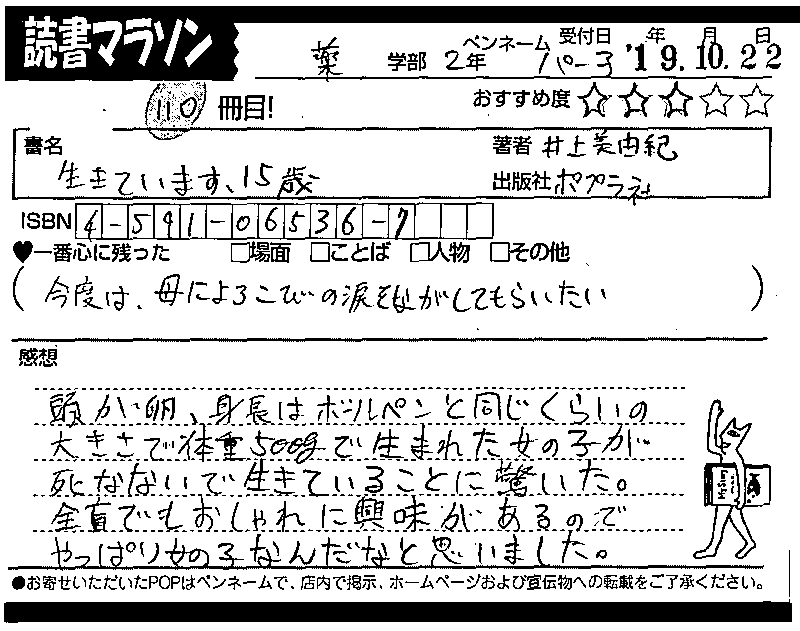 読書マラソン
薬 学部 2年 ペンネーム パーコ 受付日 '19年.10月.22日
110 冊目! おすすめ度 ☆☆☆☆☆
書名 生きています、15歳 著者 井上美由紀
出版社 ポプラ社
ISBN 4-591-06536-7
♥一番心に残った □場面 □ことば □人物 □その他
(今度は、母によろこびの涙をながしてもらいたい)
感想
頭が卵、身長はボールペンと同じくらいの
大きさで体重500gで生まれた女の子が
死なないで生きていることに驚いた。
全盲でもおしゃれに興味があるので
やっぱり女の子なんだなと思いました。
●お寄せいただいたPOPはペンネームで、店内で掲示、ホームページおよび宣伝物への転載をご了承ください。